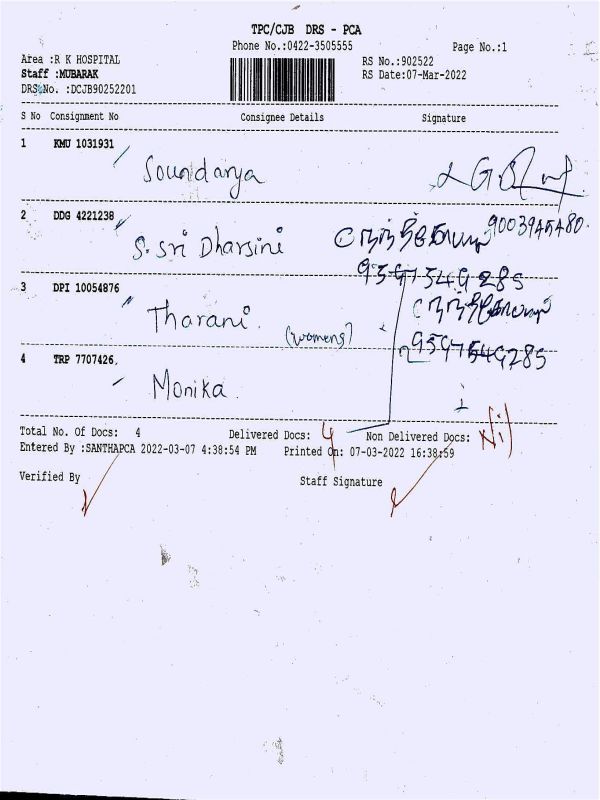 TPC/CJB DRS - PCA
Phone No.:0422-3505555 Page No.:1
Area :R K HOSPITAL RS No.:902522
Staff :MUBARAK RS Date:07-Mar-2022
DRS No. :DCJB90252201
S No Consignment No Consignee Details Signature
1 KMU 1031931
Soundarya
2 DDG 4221238
S. Sri Dharsini
3 DPI 10054876
Tharani. (womens)
9597549285
4 TRP 7707426
Monika
Total No. Of Docs: 4 Delivered Docs: 4 Non Delivered Docs: Nil
Entered By :SANTHAPCA 2022-03-07 4:38:54 PM Printed On: 07-03-2022 16:38:59
Verified By Staff Signature